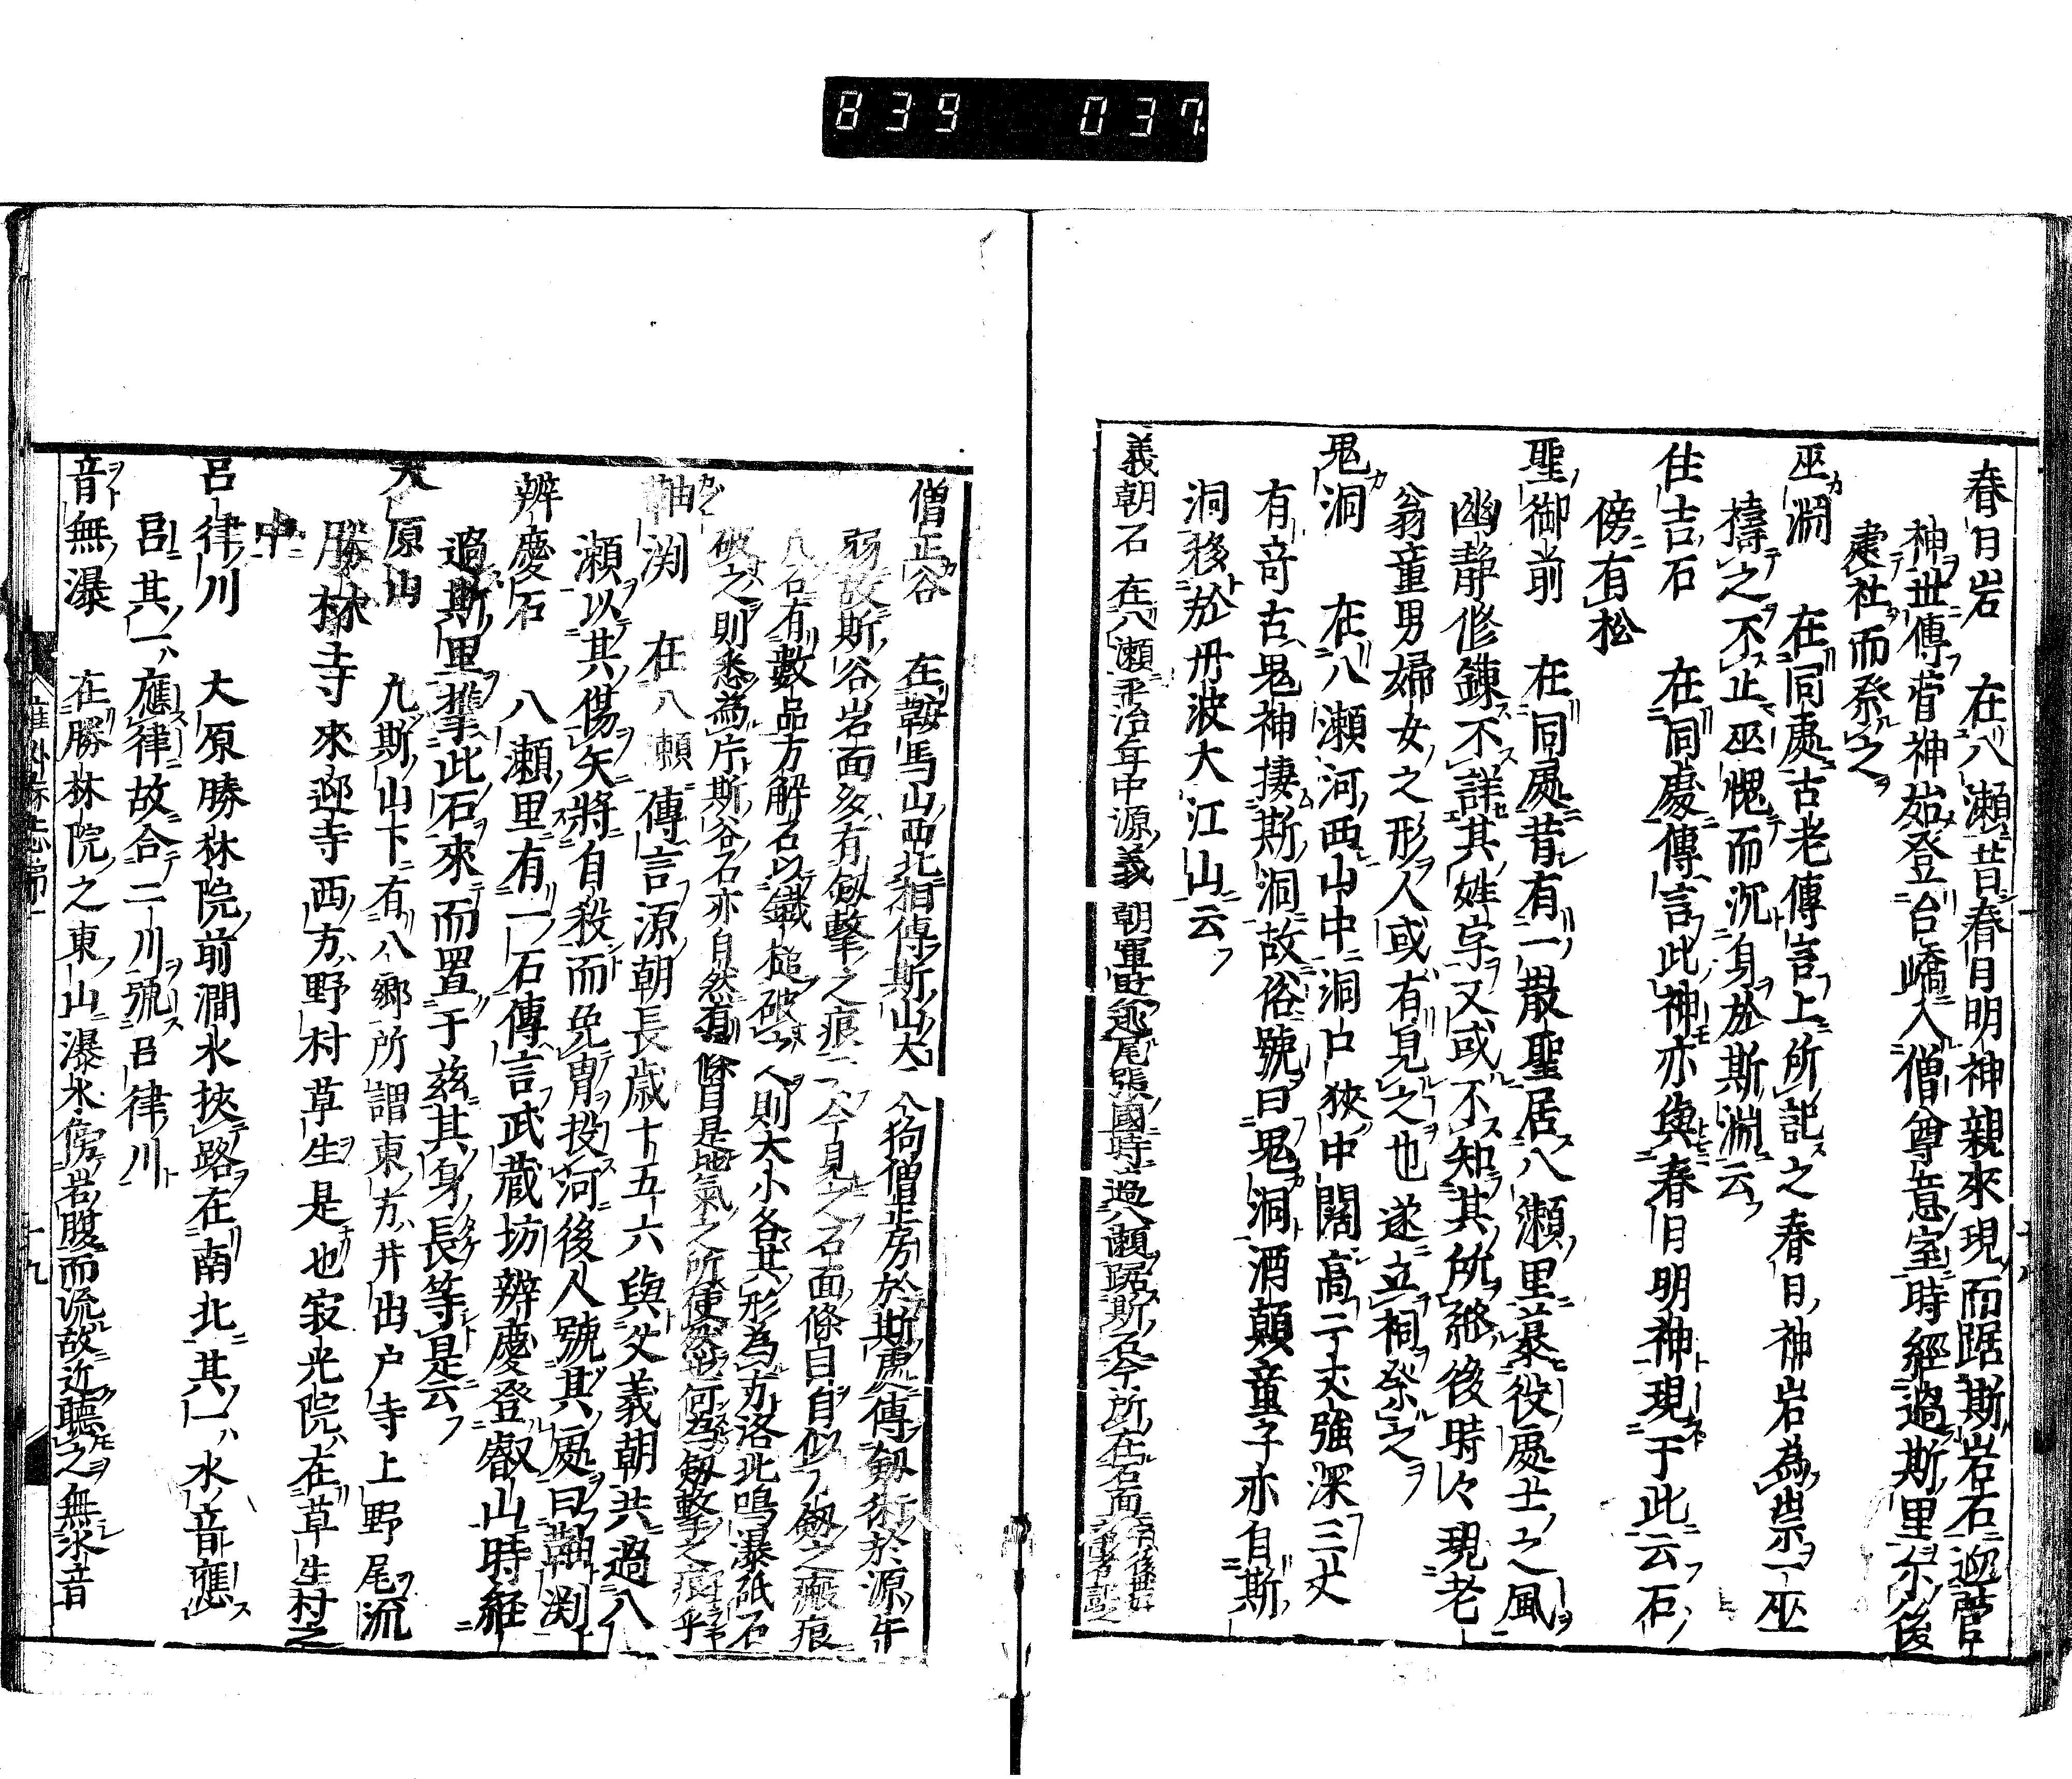 839 037
春日岩 在八瀬昔春日明神親來現而踞斯岩石迎菅
神世傳菅神始登台嶠入僧尊意室時經過斯里尓後
建社而祭之
巫淵 在同處古老傳言上所記之春日神岩為祟一巫
禱之不止巫愧而沉身於斯淵云
住吉石 在同處傳言此神亦與春日明神現于此云石
傍有松
聖御前 在同處昔有一散聖居八瀬里慕役處士之風
幽静修錬不詳其姓字又或不知其所終後時々現老
翁童男婦女之形人或有見之也遂立祠祭之
鬼洞 在八瀬河西山中洞口狹中闊高二丈強深三丈
有奇古鬼神捿斯洞故俗號曰鬼洞酒顛童子亦自斯
洞移於丹波大江山云
義朝石 在八瀬平治年中源義朝軍敗逃尾張國時過八瀬踞斯石今所在石面
僧正谷 在鞍馬山西北相傳斯山大天狗僧正房於斯處傳劔術於源牛
弱故斯谷岩面多有劔擊之痕今見之石面條目自似劔之瘢痕
凡石有數品方解石以鐵槌破之則大小各其形為方洛北鳴瀑砥石
破之則悉為片斯谷石亦自然有條目是地氣之所使然也何為劔擊之痕乎
鞠渕 在八瀬傳言源朝長歳十五六與父義朝共過八
瀬以其傷矢將自殺而免冑投河後人號其處曰鞠渕
辨慶石 八瀬里有一石傳言武藏坊辨慶登叡山時經
過斯里擎此石來而置于茲其身長等是云
大原山 九斯山下有八郷所謂東方井出戸寺上野尾流
勝林寺來迎寺西方野村草生是也寂光院在草生村之
中
呂律川 大原勝林院前澗水挾路在南北其一水音應
呂其一應律故合二川號呂律川
音無瀑 在勝林院之東山瀑水傍岩腹而流故近聽之無水音
十八
十九